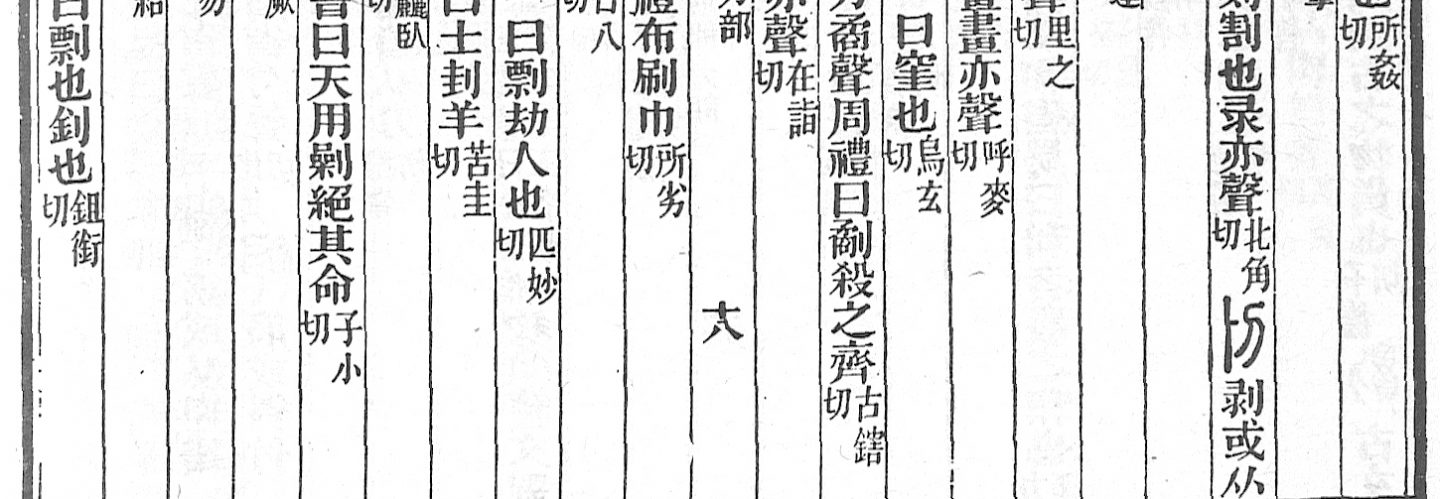 也所姦切
刻割也录亦聲北角切𠚍剥或从
聲里之切
畫畫亦聲呼麥切
曰窐也烏玄切
矞聲周禮曰劀殺之齊古鎋切
亦聲在詣切
刀部 十八
禮布刷巾所劣切
八切
曰剽劫人也匹妙切
曰士刲羊苦圭切
麤臥切
書曰天用剿絕其命子小切
厥
勿
給
曰剽也釗也鉏銜切